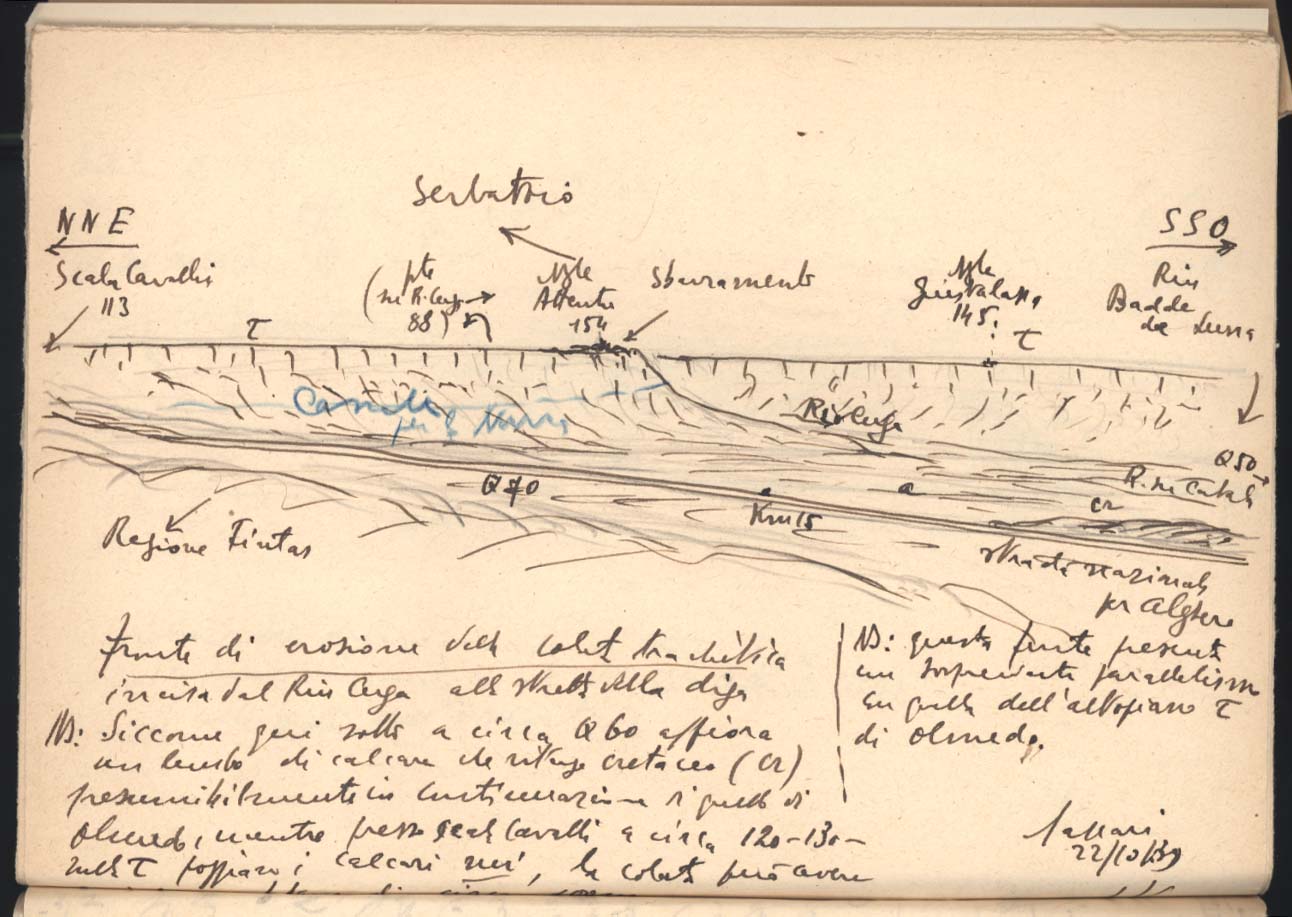 Serbatoio
NNE
SSO
Scala Cavalli
113
(pte
su R. Cuga →
88)
Nghe
Attentu
154
Sbarramento
Nghe
145
Riu
Badde
de Jussa
τ
τ
Canale
per la Nurra
Rio Cuga
Q 50 →
R. su Catala
Q 70
Km 15
a
cr
Regione Fintas
strada nazionale
per Alghero
fronte di erosione della colata trachitica
incisa dal Riu Cuga alla stretta della diga
NB: Siccome qui sotto a circa Q 60 affiora
un lembo di calcare che ritengo cretaceo (cr)
presumibilmente in continuazione di quello di
Olmedo, mentre presso Scala Cavalli a circa 120-130-
sulla τ poggiano i calcari mi', la colata può avere
NB: questa fronte presenta
un sorprendente parallelismo
con quella dell'altopiano τ
di Olmedo.
Sassari
22/10/39